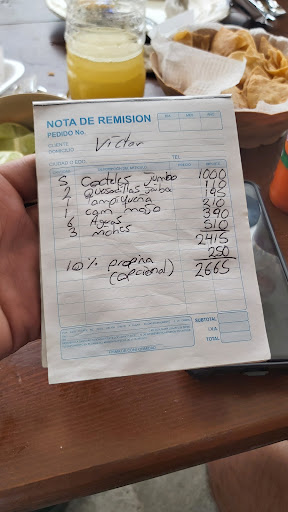 NOTA DE REMISION
PEDIDO No.
CLIENTE Victor
DOMICILIO
CIUDAD O EDO. TEL.
IMPORTE
5 Cocteles jumbo 1000
2 Quesadillas jaiba 110
1 tampiqueña 195
1 cam mojo 210
6 Aguas 390
3 miches 510
2415
10% propina 250
(opcional) 2665
SUBTOTAL
I.V.A.
TOTAL